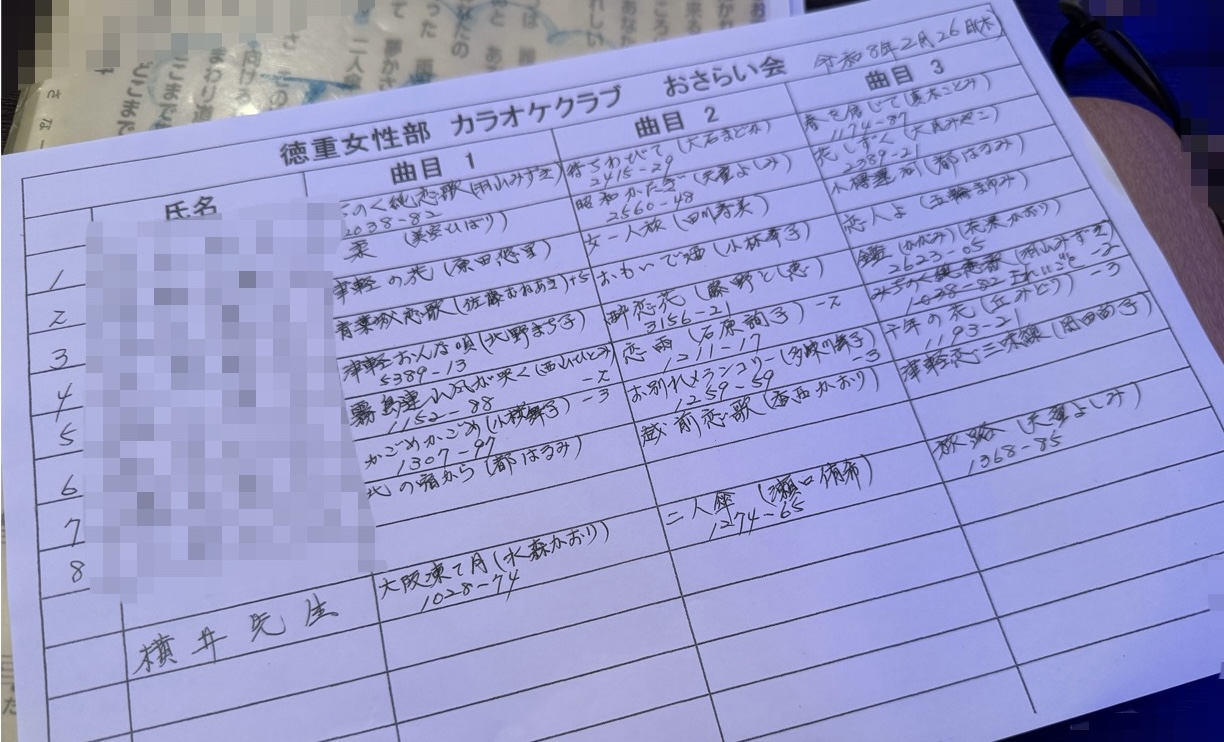 徳重女性部 カラオケクラブ おさらい会 令和8年2月26日(木)
氏名 曲目 1 曲目 2 曲目 3
1 みちのく純恋歌(羽山みずき) 待ちわびて(大石まどか) 春を信じて(真木ことみ)
2038-82 2415-29 1174-87
2 柔 (美空ひばり) 昭和かたぎ(天童よしみ) 花しずく
2560-48 2389-21
3 津軽の花(原田悠里) 女一人旅(田川寿美) 小樽運河(都はるみ)
4 青葉城恋歌(佐藤むねあき)+5 おもいで酒(小林幸子) 恋人よ(五輪まゆみ)
5 津軽おんな唄(北野まち子) 酔恋花(藤野とし恵) 鏡(かがみ)(未来かおり)
5389-13 3156-21 2623-05
6 霧島連山風が哭く(西山ひとみ) -2 恋雨(石原詢子) -2 みちのく純恋歌(羽山みずき) -2
1152-88 1211-17 1038-82
7 かごめかごめ(小桜舞子) -3 お別れメランコリー(多岐川舞子) -3 千年の花(丘みどり) -3
1307-97 1259-59 1193-21
8 北の宿から(都はるみ) 越前恋歌(香西かおり) 津軽恋三味線
横井先生 大阪凍て月(水森かおり) 二人傘(瀬口侑希) 旅路(天童よしみ)
1028-74 1274-65 1368-85